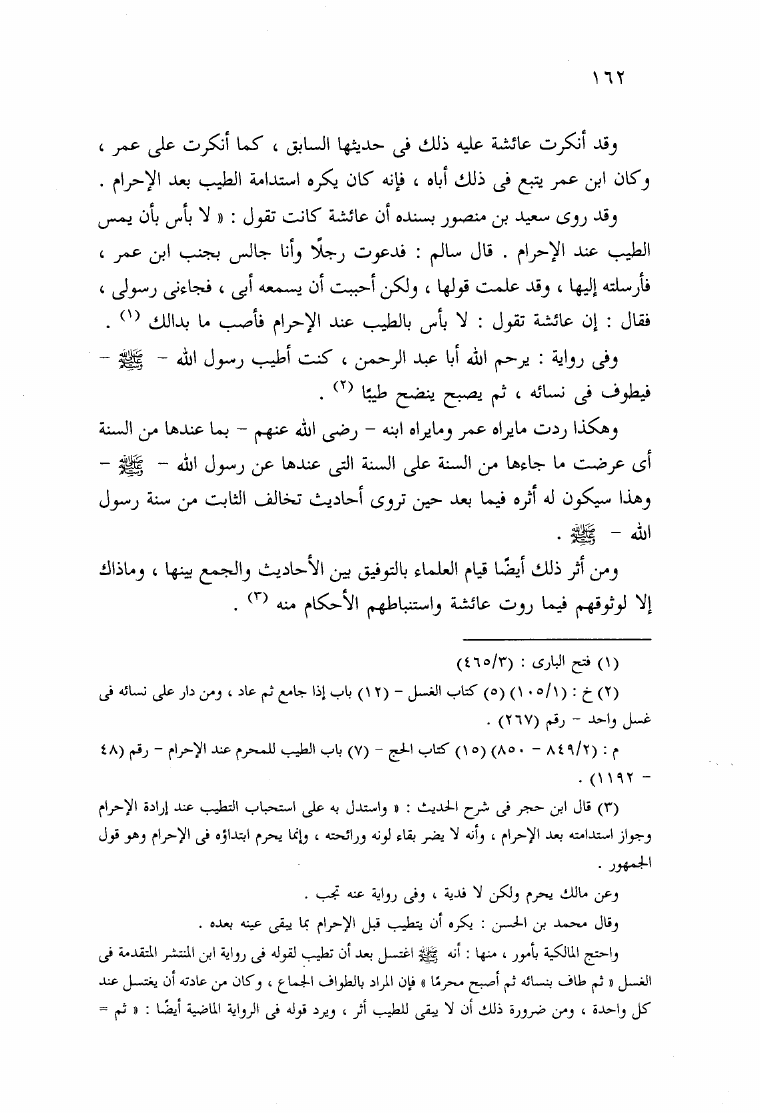 ١٦٢
وقد أنكرت عائشة عليه ذلك فى حديثها السابق ، كما أنكرت على عمر ،
وكان ابن عمر يتبع فى ذلك أباه ، فإنه كان يكره استدامة الطيب بعد الإحرام .
وقد روى سعيد بن منصور بسنده أن عائشة كانت تقول : « لا بأس بأن يمس
الطيب عند الإحرام . قال سالم : فدعوت رجلًا وأنا جالس بجنب ابن عمر ،
فأرسلته إليها ، وقد علمت قولها ، ولكن أحببت أن يسمعه أبى ، فجاءنى رسولى ،
فقال : إن عائشة تقول : لا بأس بالطيب عند الإحرام فأصب ما بدالك (١) .
وفى رواية : يرحم الله أبا عبد الرحمن ، كنت أطيب رسول الله - ﷺ -
فيطوف فى نسائه ، ثم يصبح ينضح طيبًا (٢) .
وهكذا ردت مايراه عمر ومايراه ابنه - رضى الله عنهم - بما عندها من السنة
أى عرضت ما جاءها من السنة على السنة التى عندها عن رسول الله - ﷺ -
وهذا سيكون له أثره فيما بعد حين تروى أحاديث تخالف الثابت من سنة رسول
الله - ﷺ .
ومن أثر ذلك أيضًا قيام العلماء بالتوفيق بين الأحاديث والجمع بينها ، وماذاك
إلا لوثوقهم فيما روت عائشة واستنباطهم الأحكام منه (٣) .
(١) فتح البارى : (٤٦٥/٣)
(٢) خ : (١٠٥/١) (٥) كتاب الغسل - (١٢) باب إذا جامع ثم عاد ، ومن دار على نسائه فى
غسل واحد - رقم (٢٦٧) .
م : (٨٤٩/٢ - ٨٥٠) (١٥) كتاب الحج - (٧) باب الطيب للمحرم عند الإحرام - رقم (٤٨
- ١١٩٢) .
(٣) قال ابن حجر فى شرح الحديث : « واستدل به على استحباب التطيب عند إرادة الإحرام
وجواز استدامته بعد الإحرام ، وأنه لا يضر بقاء لونه ورائحته ، وإنما يحرم ابتداؤه فى الإحرام وهو قول
الجمهور .
وعن مالك يحرم ولكن لا فدية ، وفى رواية عنه تجب .
وقال محمد بن الحسن : يكره أن يتطيب قبل الإحرام بما يبقى عينه بعده .
واحتج المالكية بأمور ، منها : أنه ﷺ اغتسل بعد أن تطيب لقوله فى رواية ابن المنتشر المتقدمة فى
الغسل « ثم طاف بنسائه ثم أصبح محرمًا » فإن المراد بالطواف الجماع ، وكان من عادته أن يغتسل عند
كل واحدة ، ومن ضرورة ذلك أن لا يبقى للطيب أثر ، ويرد قوله فى الرواية الماضية أيضًا : « ثم =